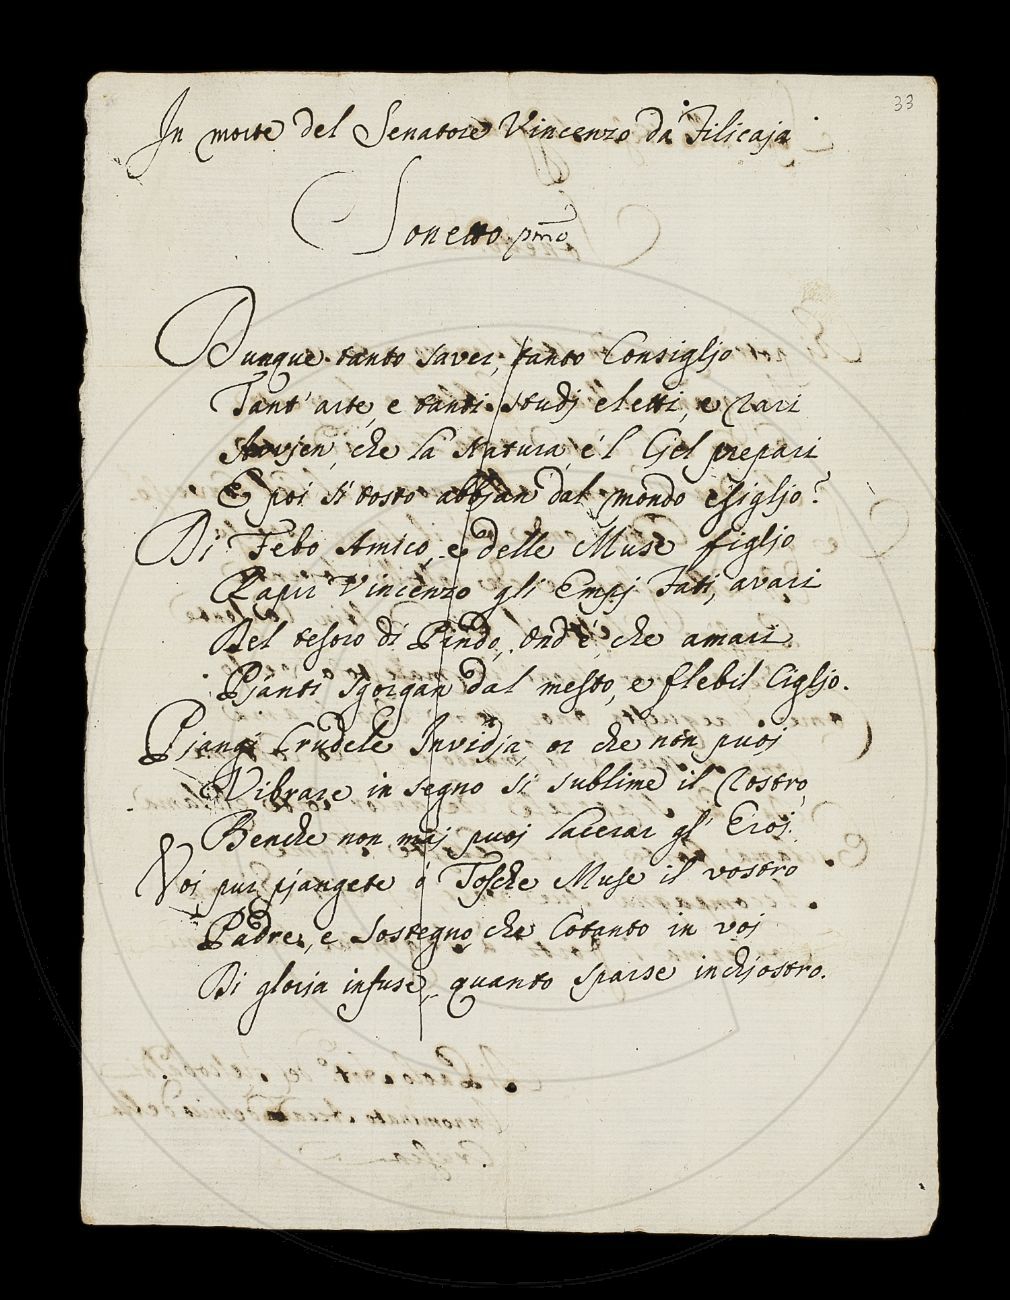 33
In morte del Senatore Vincenzo da Filicaja
Sonetto pmo
Dunque tanto saver, tanto Consigljo
Tant' arte, e tanti studj eletti, e rari
Avvjen, che la Natura, e'l Cjel prepari
E poi sì tosto abbjan dal mondo esigljo?
Di Febo Amico, e delle Muse figljo
Rapir Vincenzo gli Empj Fati, avari
Del tesoro di Pindo, ond'è che amari
Pjanti sgorgan dal mesto, e flebil Cigljo.
Pjangi Crudele Invidja, or che non puoj
Vibrare in segno sì sublime il rostro,
Benche non maj puoj lacerar gl' Eroj.
Voj pur pjangete ò Tosche Muse il vostro
Padre, e sostegno, che Cotanto in voj
Di glorja infuse, quanto sparse inchjostro.